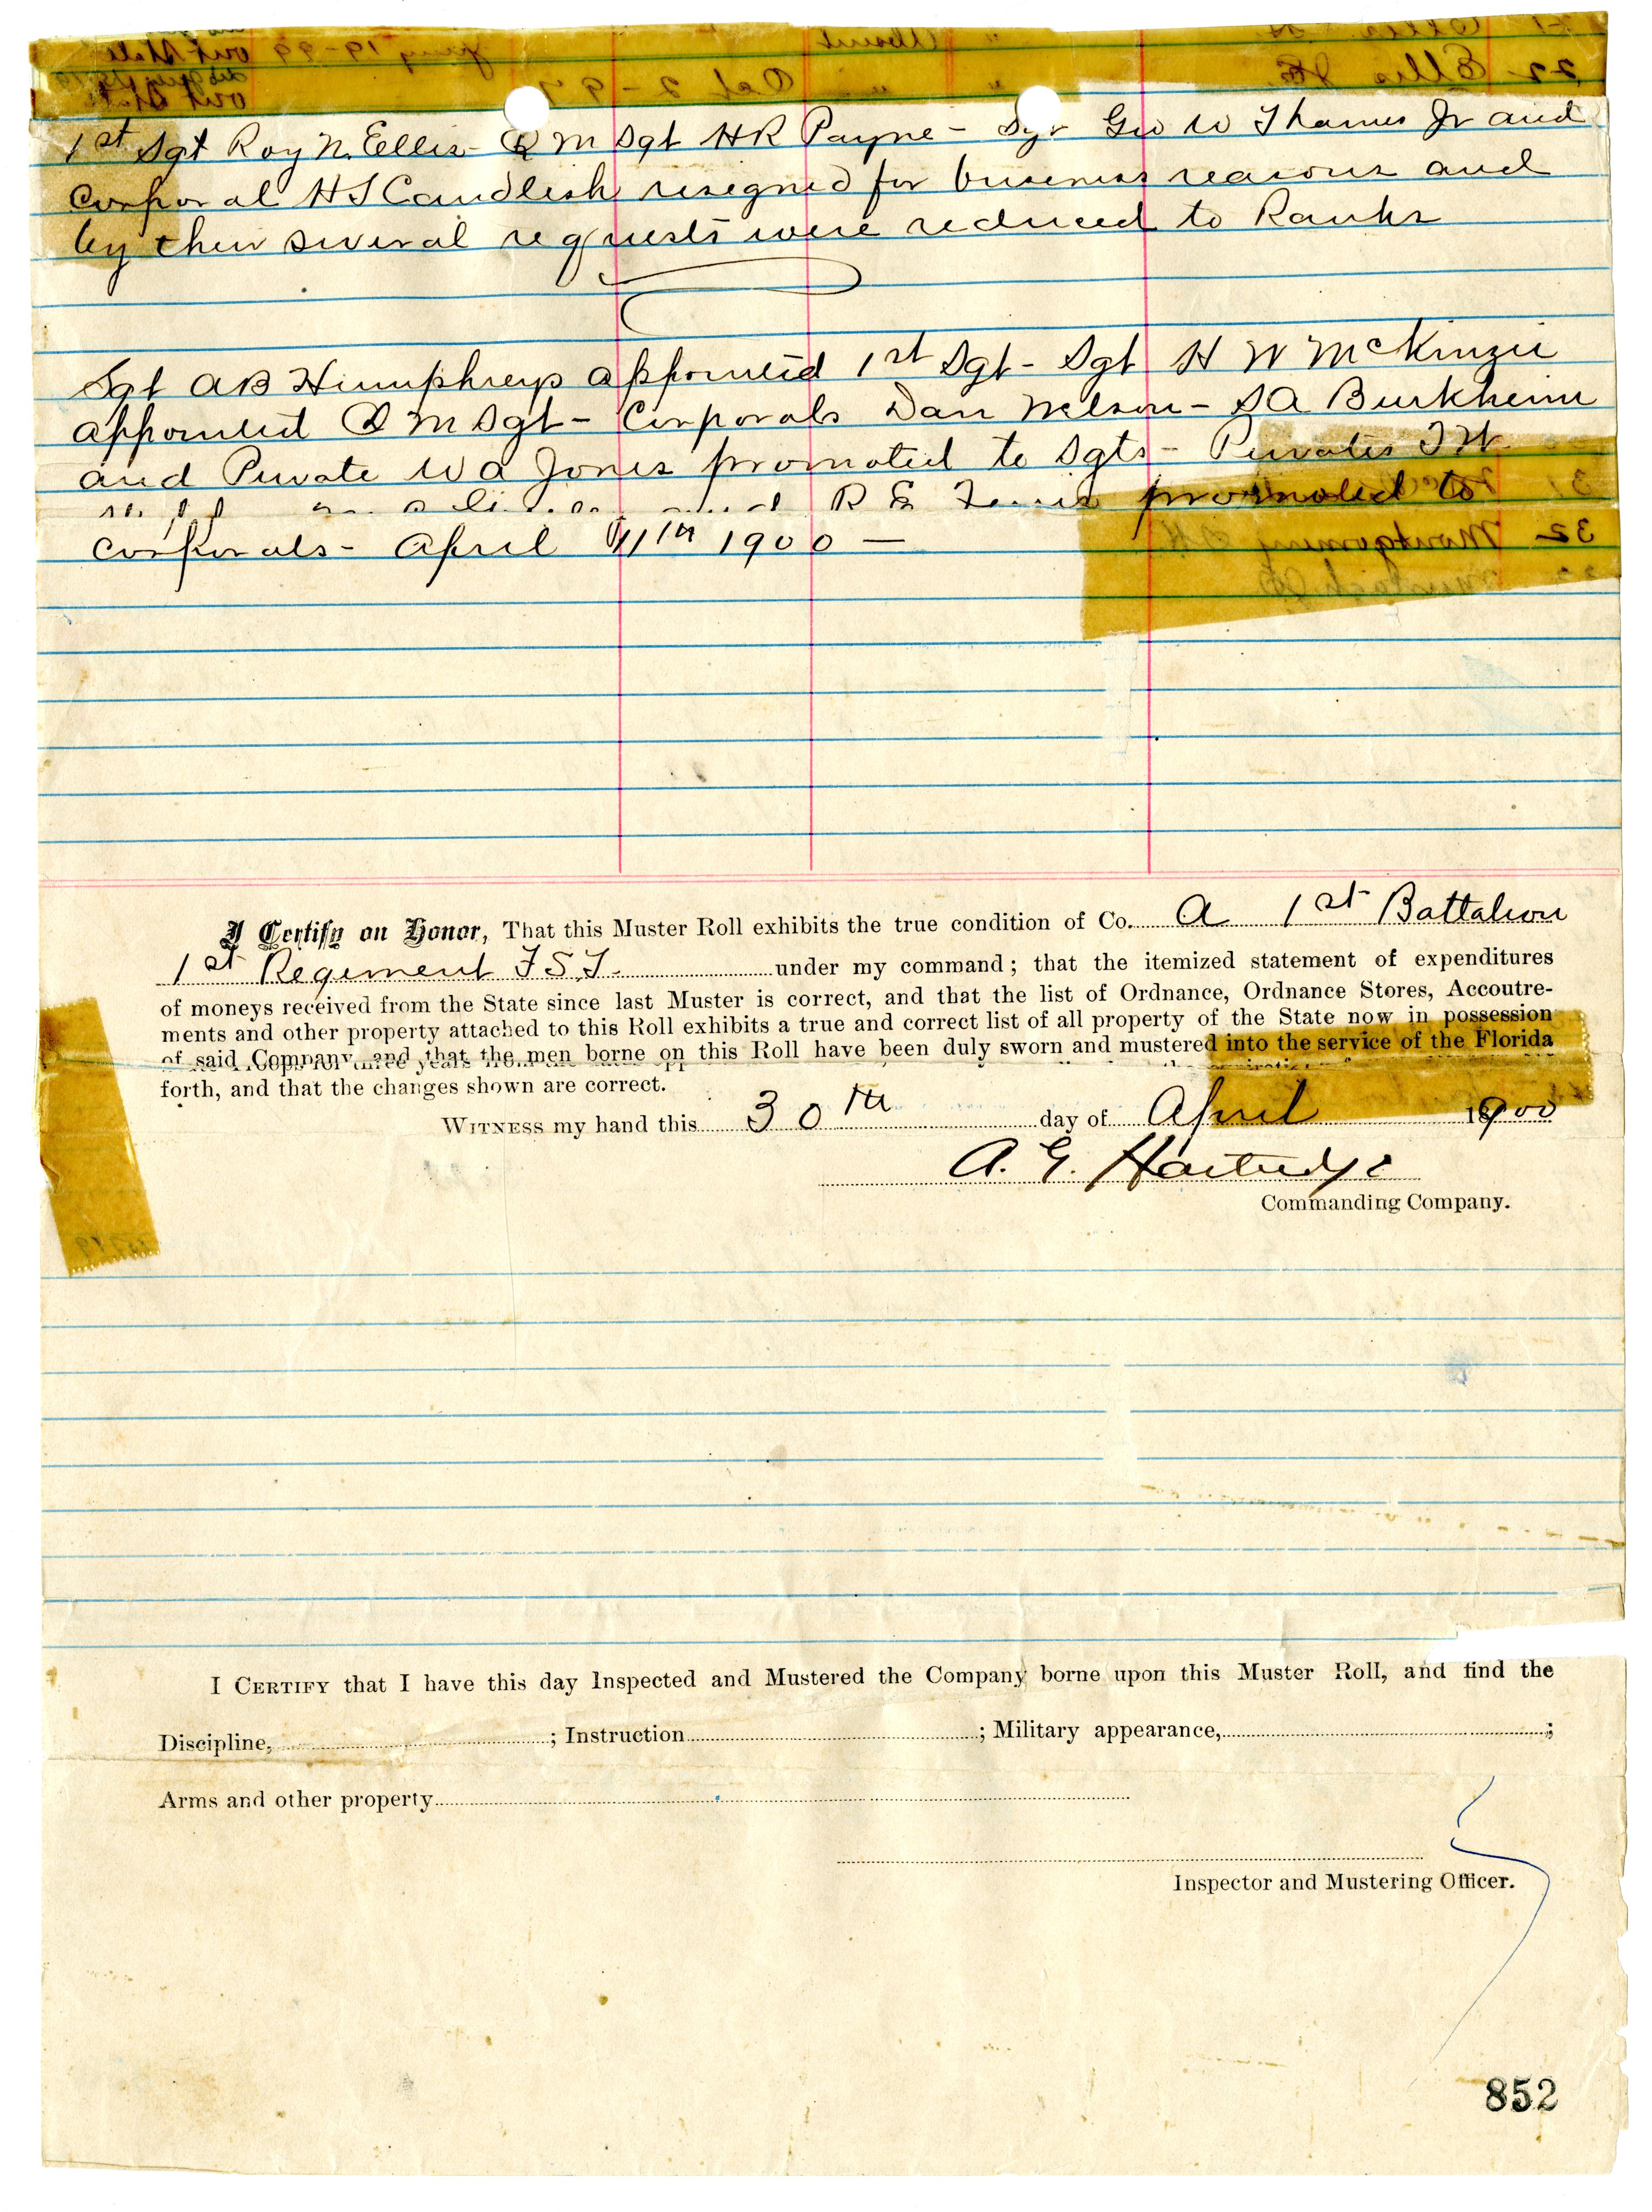 1st Sgt Roy N. Ellis - Q M Sgt H R Payne - Sgt Geo W Thames Jr and
Corporal H S Candlish resigned for business reasons and
by their several requests were reduced to Ranks
Sgt A B Humphreys appointed 1st Sgt - Sgt H W McKinzie
appointed Q M Sgt - Corporals Dan Nelson - S A Burkheim
and Private W A Jones promoted to Sgts - Privates
and R E promoted to
Corporals - April 11th 1900 —
I Certify on Honor, That this Muster Roll exhibits the true condition of Co. A 1st Battalion
1st Regiment F S T. under my command; that the itemized statement of expenditures
of moneys received from the State since last Muster is correct, and that the list of Ordnance, Ordnance Stores, Accoutre-
ments and other property attached to this Roll exhibits a true and correct list of all property of the State now in possession
of said Company and that the men borne on this Roll have been duly sworn and mustered into the service of the Florida
forth, and that the changes shown are correct.
WITNESS my hand this 30th day of April 1900
A. G. Hartridge
Commanding Company.
I CERTIFY that I have this day Inspected and Mustered the Company borne upon this Muster Roll, and find the
Discipline, ; Instruction ; Military appearance, ;
Arms and other property
Inspector and Mustering Officer.
852